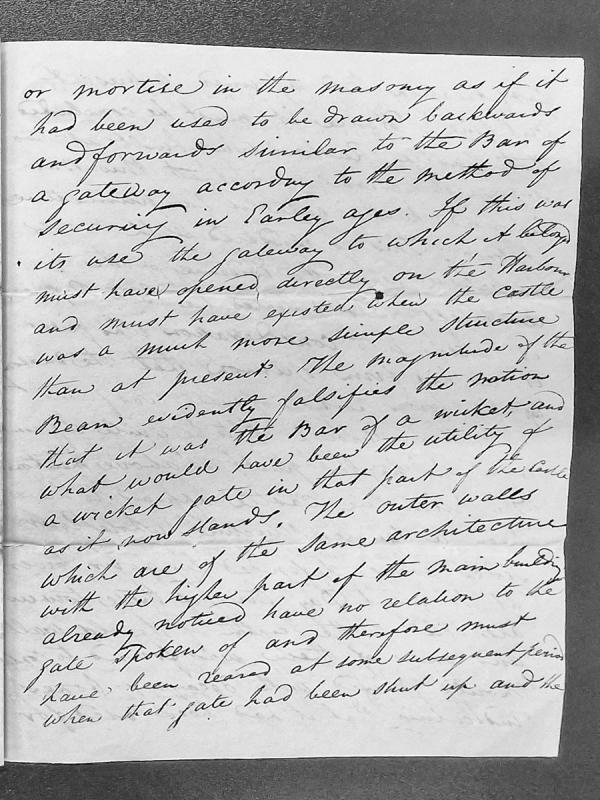 or mortise in the masonry as if it
had been used to be drawn backwards
and forwards similar to the Bar of
a gateway according to the method of
securing in Earley ages. If this was
its use the gateway to which it belongs
must have opened directly on the Harbour
and must have existed when the Castle
was a much more simple structure
than at present. The magnitude of the
Beam evidently falsifies the notion
that it was the Bar of a wicket, and
what would have been the utility of
a wicket gate in that part of the Castle
as it now stands. The outer walls
which are of the same architecture
with the higher part of the main building
already noticed have no relation to the
gate spoken of and therefore must
have been reared at some subsequent period
when that gate had been shut up and the